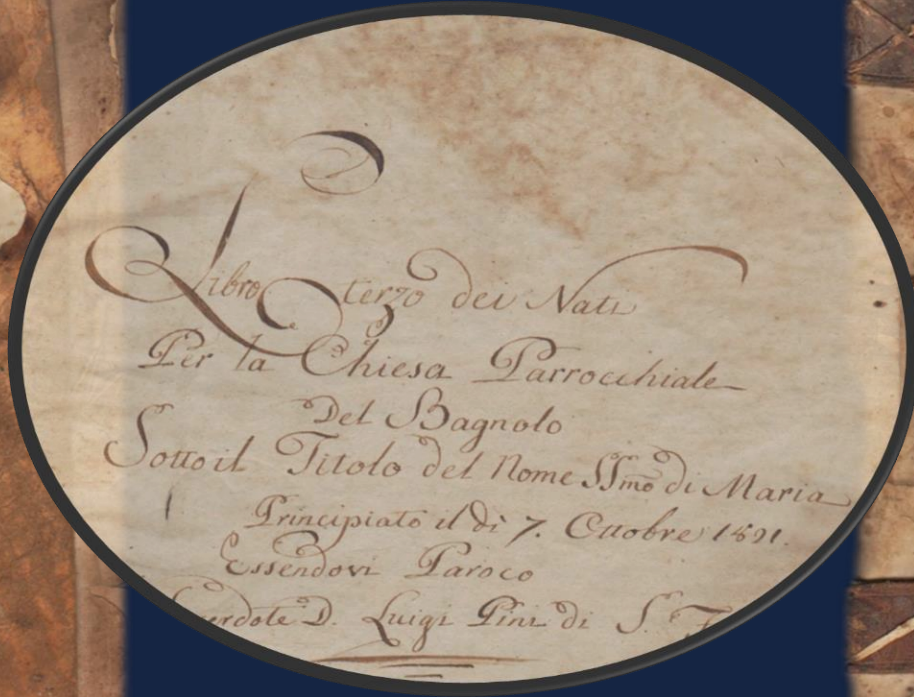 Libro terzo dei Nati
Per la Chiesa Parrocchiale
Del Bagnolo
Sotto il Titolo del Nome SSmo di Maria
Principiato il dì 7. Ottobre 1821.
Essendovi Paroco
D. Luigi Pini di S.